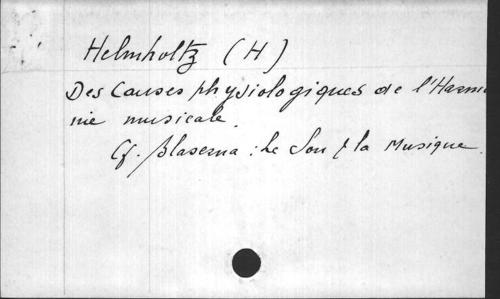 Helmholtz (H)
Des Causes physiologiques de l'Harmo
nie musicale.
Cf. Blaserna : Le Son & la Musique.